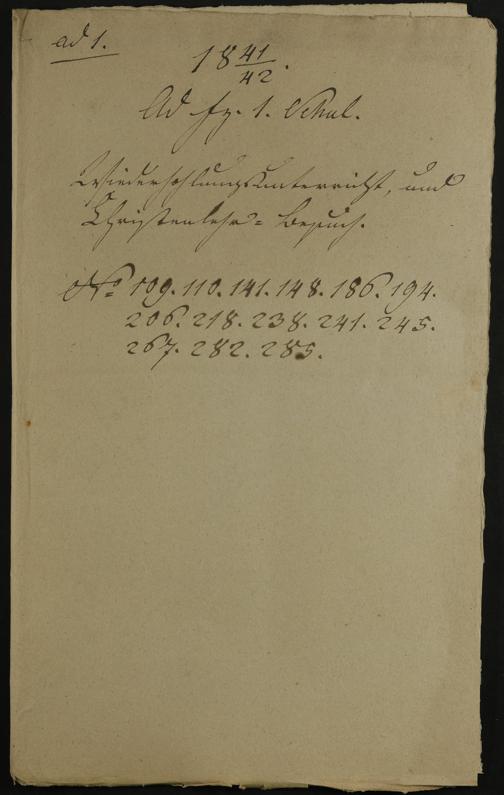 ad 1.
18 41/42.
Ad fz. 1. Schul.
Wiederholungsunterricht, und
Christenlehr= Besuch.
No 109. 110. 141. 148. 186. 194.
206. 218. 238. 241. 245.
267. 282. 285.